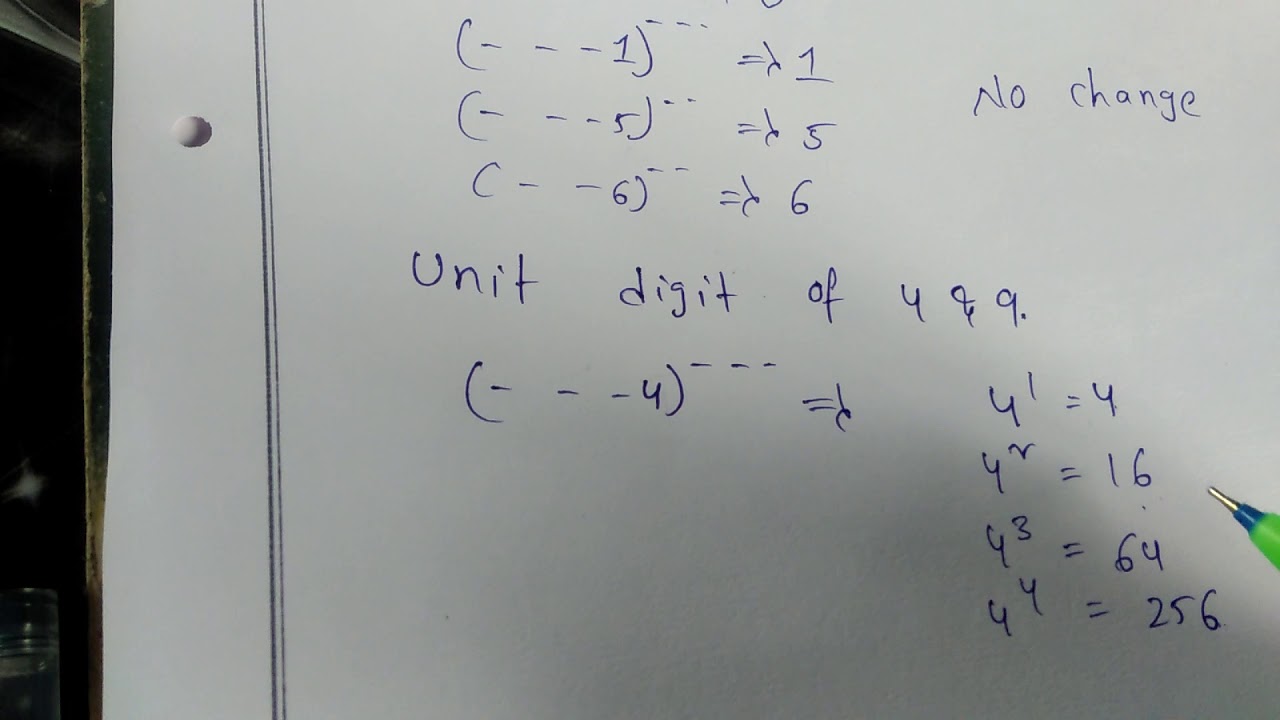 (- - -1)^--- => 1
(- - -5)^-- => 5
No change
(- -6)^-- => 6
Unit digit of 4 & 9.
(- - -4)^--- =>
4^1 = 4
4^2 = 16
4^3 = 64
4^4 = 256